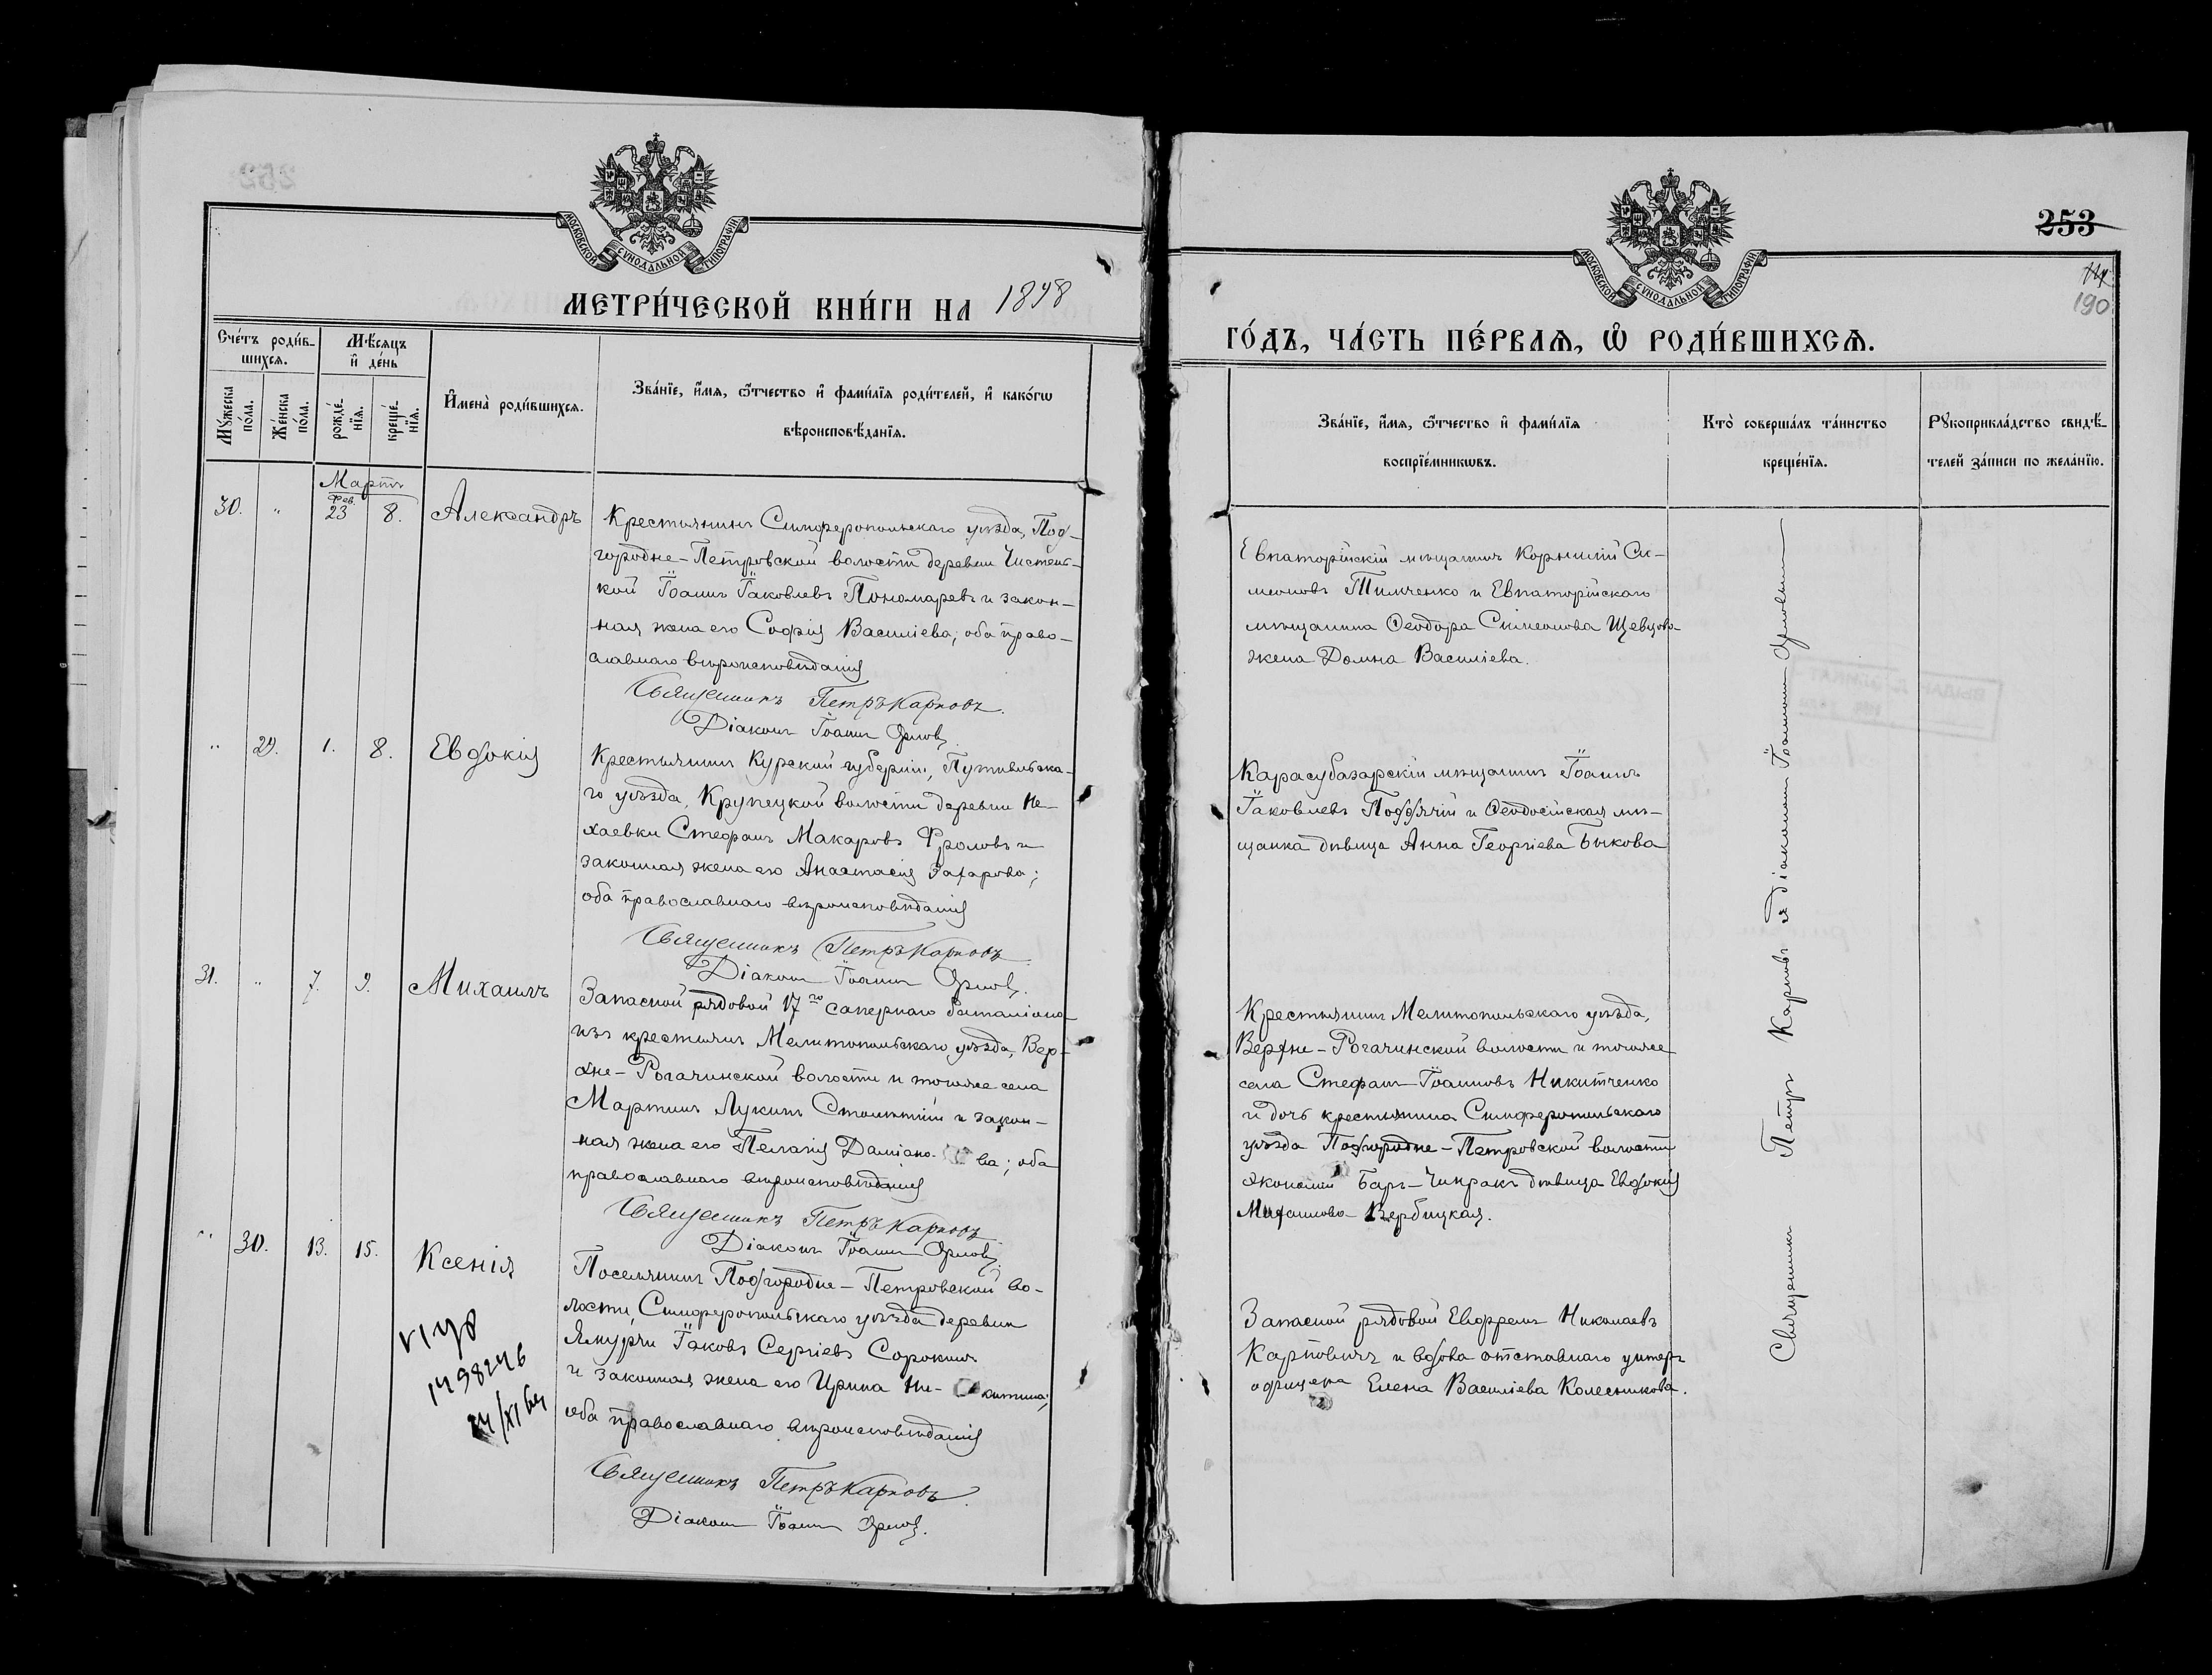 МОСКОВСКОЙ СУНОДАЛЬНОЙ ТИПОГРАФІИ
МЕТРИ́ЧЕСКОЙ КНИ́ГИ НА 1898
Сче́тъ роди́в-
шихся.
Мѣ́сяцъ
и҆ де́нь
Мꙋ́жеска
по́ла.
Же́нска
по́ла.
рожде́-
нїя.
креще́-
нїя.
И҆мена̀ роди́вшихся.
Зва́нїе, и҆́мя, ѻ҆́тчество и҆ фами́лїя роди́телей, и҆ како́гѡ
вѣроисповѣ́данїя.
Мартъ
30. " Фев. 23 8. Александръ
Крестьянинъ Симферопольскаго уѣзда, Под-
городне-Петровской волости деревни Чистень-
кой Іоаннъ Іаковлевъ Пономаревъ и закон-
ная жена его Софія Василіева; оба право-
славнаго вѣроисповѣданія
Священникъ Петръ Карповъ.
Діаконъ Іоаннъ Орловъ.
" 29. 1. 8. Евдокія
Крестьянинъ Курской губерніи, Путивльска-
го уѣзда, Крупецкой волости деревни Не-
хаевки Стефанъ Макаровъ Фроловъ и
законная жена его Анастасія Захарова;
оба православнаго вѣроисповѣданія
Священникъ Петръ Карповъ
Діаконъ Іоаннъ Орловъ.
31. " 7. 9. Михаилъ
Запасной рядовой 17го сапернаго баталіона
изъ крестьянъ Мелитопольскаго уѣзда, Вер-
хне-Рогачинской волости и тогоже села
Мартинъ Лукинъ Столѣтній и закон-
ная жена его Пелагія Даміано- ва; оба
православнаго вѣроисповѣданія
Священникъ Петръ Карповъ
Діаконъ Іоаннъ Орловъ.
" 30. 13. 15. Ксенія
Поселянинъ Подгородне-Петровской во-
лости, Симферопольскаго уѣзда деревни
Ямурчи Іаковъ Сергіевъ Сорокинъ
и законная жена его Ирина Ни- китина;
оба православнаго вѣроисповѣданія
Священникъ Петръ Карповъ.
Діаконъ Іоаннъ Орловъ.
МОСКОВСКОЙ СУНОДАЛЬНОЙ ТИПОГРАФІИ
253
190
ГО́ДЪ, ЧА́СТЬ ПЕ́РВАЯ, Ѡ҆ РОДИ́ВШИХСЯ.
Зва́нїе, и҆́мя, ѻ҆́тчество и҆ фами́лїя
воспрїе́мникѡвъ.
Кто̀ соверша́лъ та́инство
креще́нїя.
Рꙋкоприкла́дство свидѣ́-
телей за́писи по жела́нїю.
Евпаторійскій мѣщанинъ Корнилій Си-
меоновъ Тимченко и Евпаторійскаго
мѣщанина Ѳеодора Симеонова Щевцова
жена Домна Василіева.
Карасубазарскій мѣщанинъ Іоаннъ
Іаковлевъ Поддячій и Ѳеодосійская мѣ-
щанка дѣвица Анна Георгіева Быкова
Крестьянинъ Мелитопольскаго уѣзда,
Верхне-Рогачинской волости и тогоже
села Стефанъ Іоанновъ Никитченко
и дочь крестьянина Симферопольскаго
уѣзда Подгородне-Петровской волости
экономіи Баръ-Чикракъ дѣвица Евдокія
Михаилова Вербицкая.
Запасной рядовой Евфремъ Николаевъ
Карповичъ и вдова отставнаго унтеръ
офицера Елена Василіева Колесникова.
Священникъ Петръ Карповъ и Діаконъ Іоаннъ Орловъ